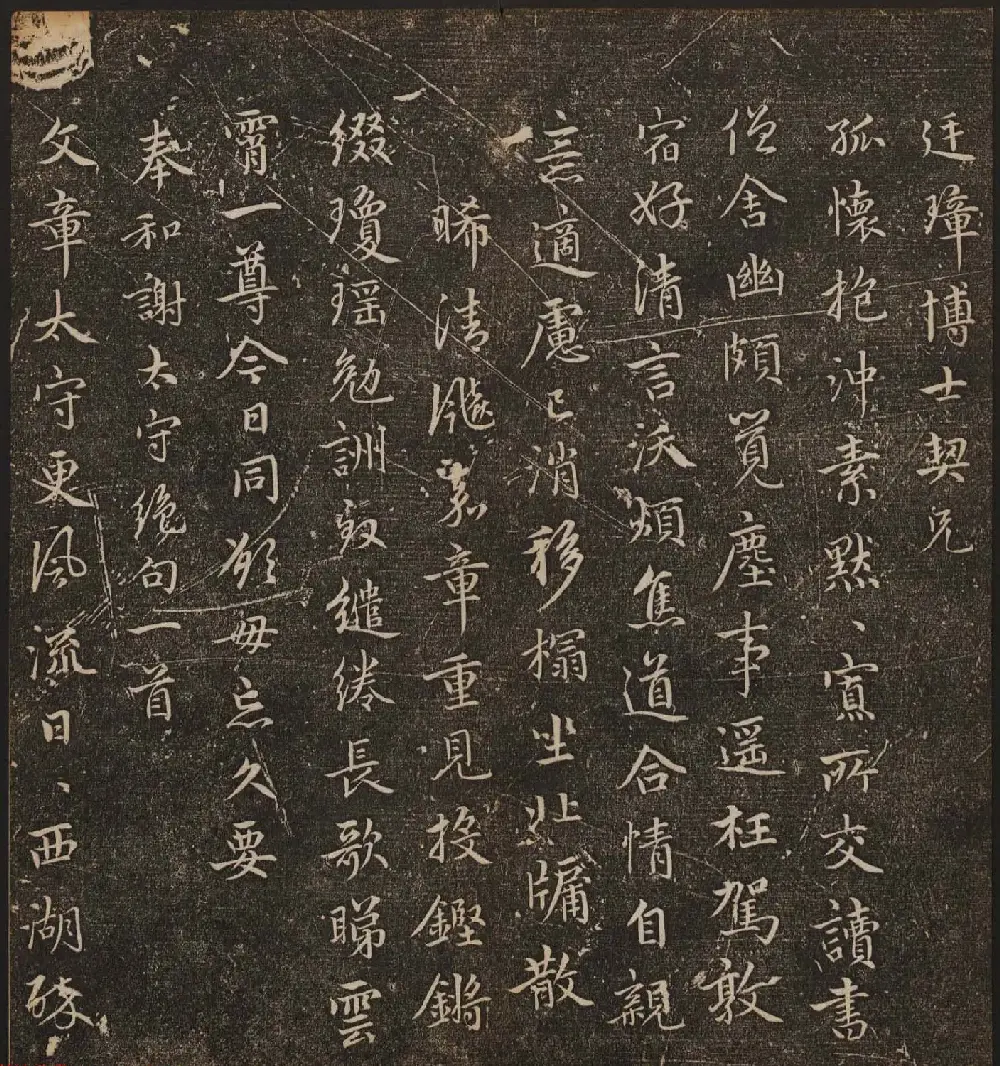 迋璋博士契兄
孤懷抱沖素默、寡所交讀書
僧舍幽頗覺塵事遥枉駕敦
宿好清言沃煩焦道合情自親
意適慮已消移榻坐北牖散
晞清飈嘉章重見投鏗鏘
綴瓊瑶勉詶致繾綣長歌睇雲
霄一尊今日同願毋忘久要
奉和謝太守絶句一首
文章太守更風流日、西湖醉